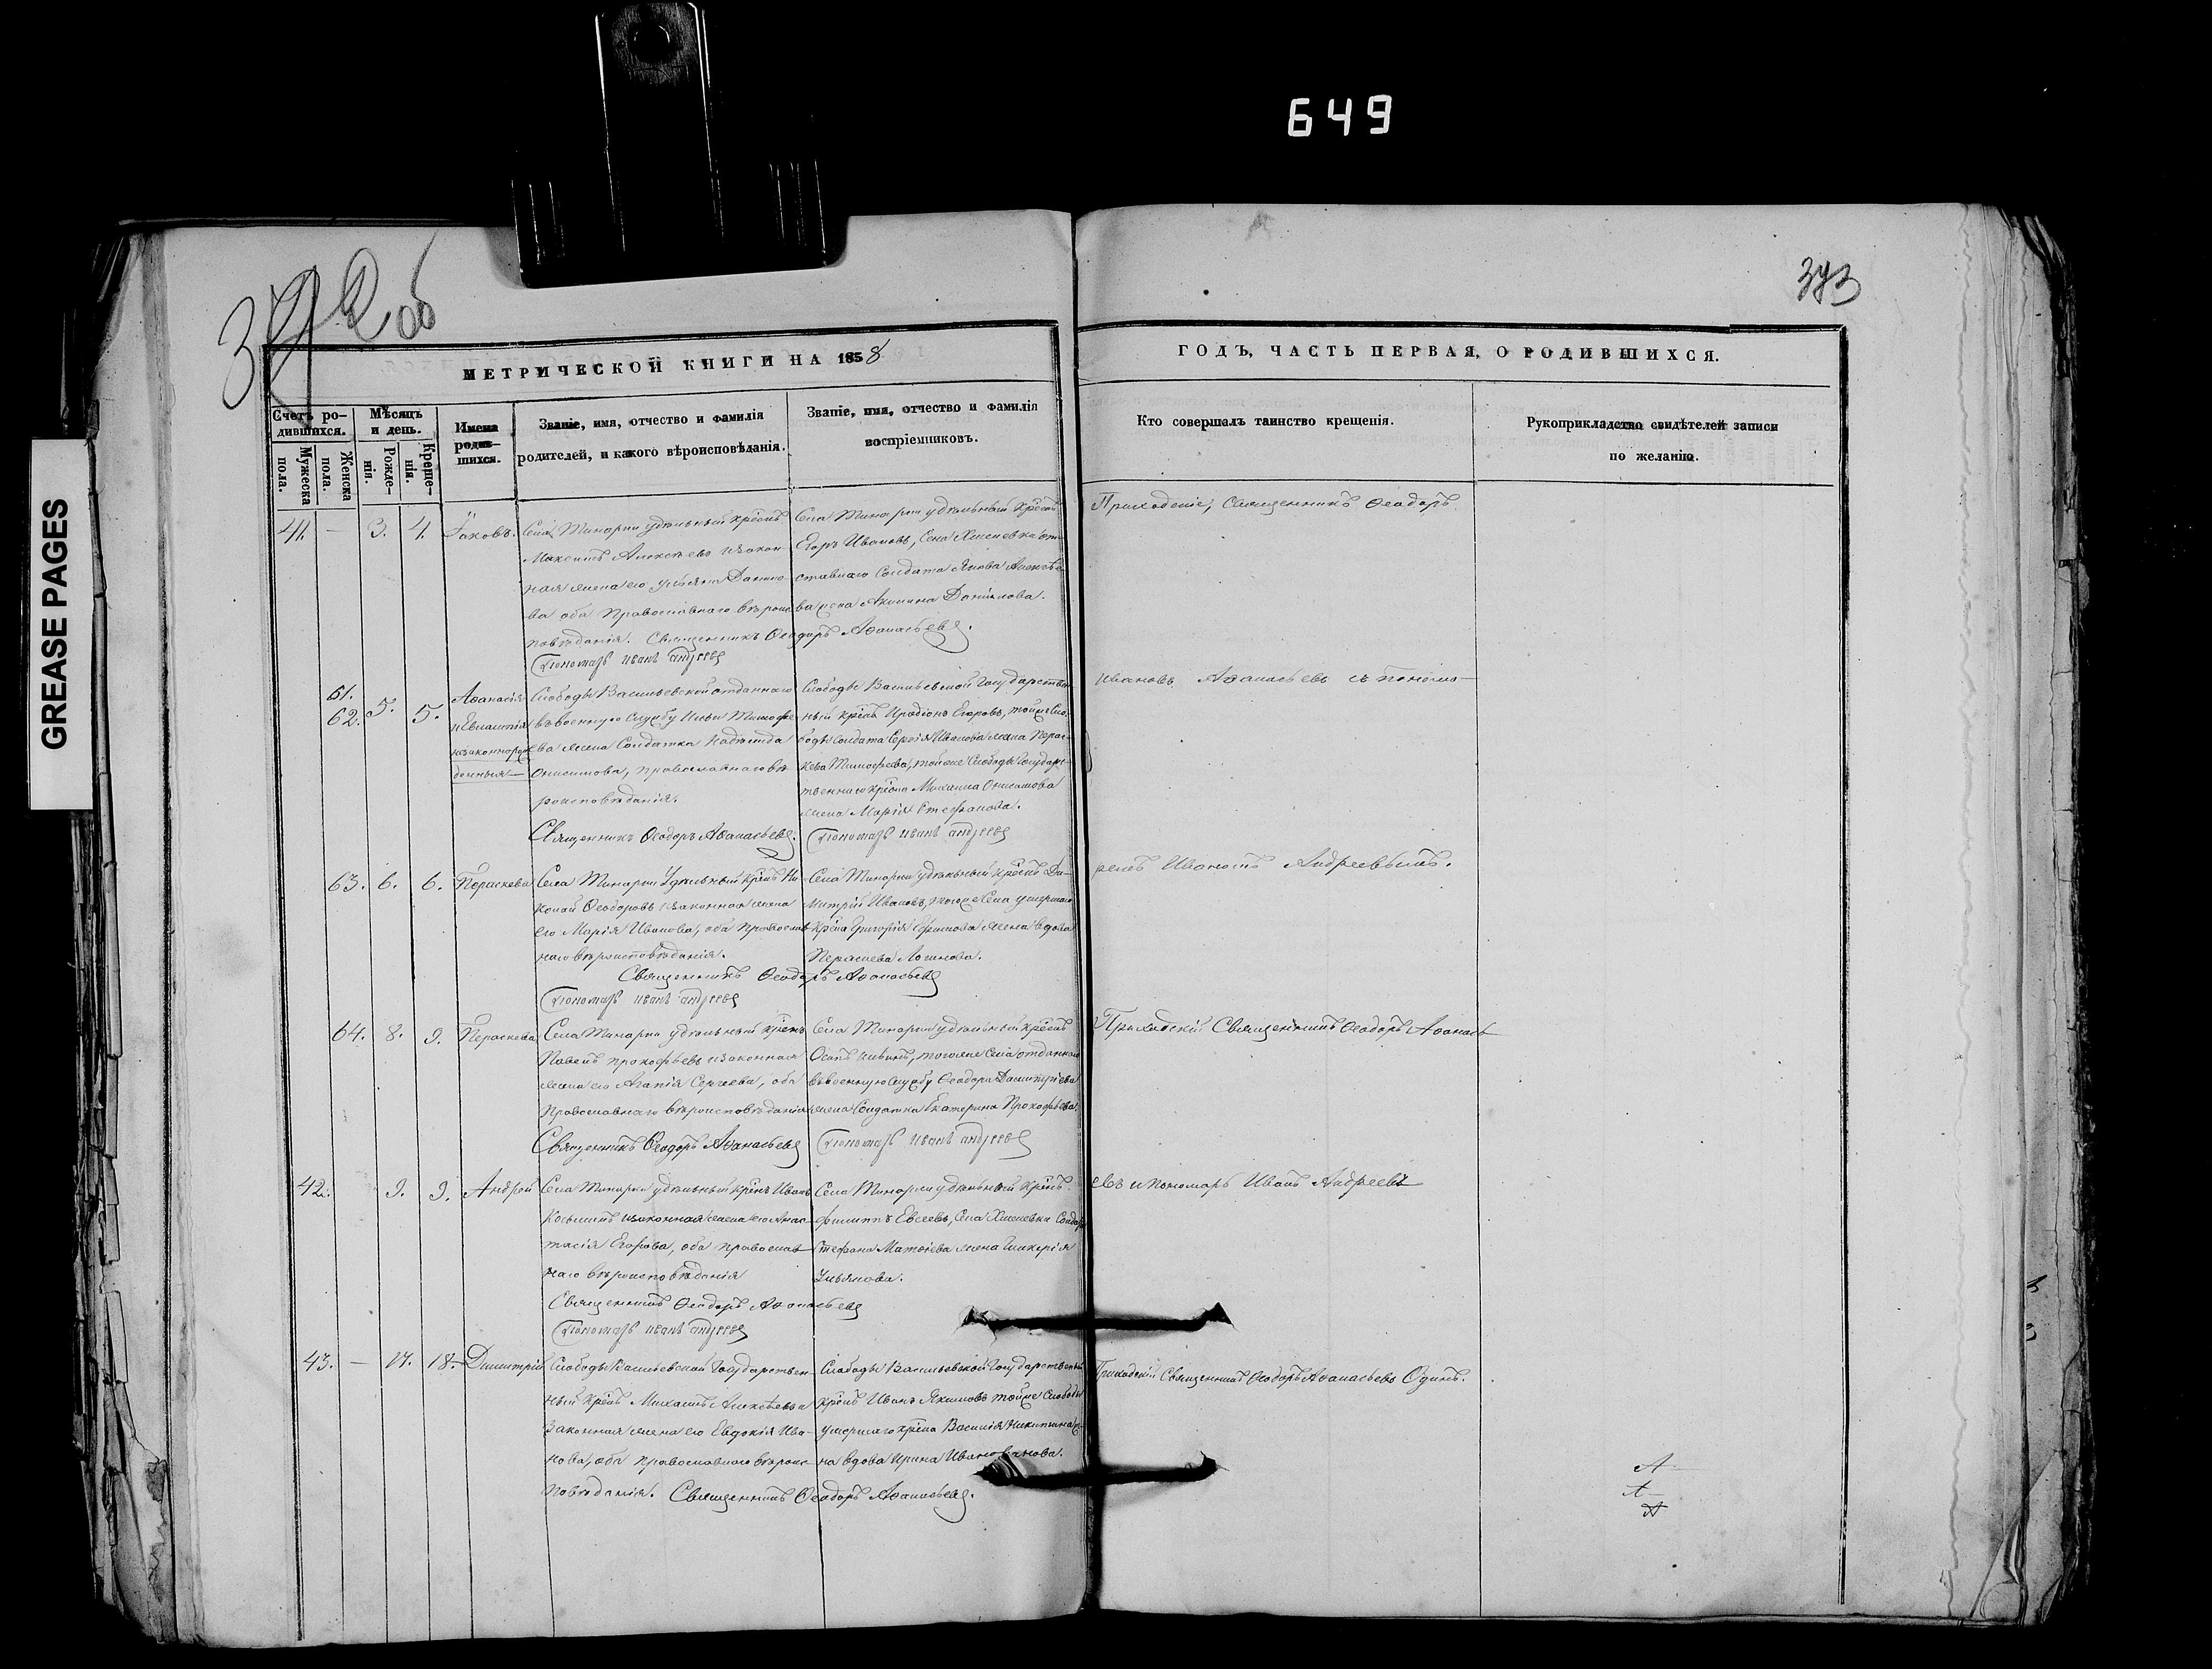 649
GREASE PAGES
372 об
373
МЕТРИЧЕСКОЙ КНИГИ НА 1858
ГОДЪ, ЧАСТЬ ПЕРВАЯ, О РОДИВШИХСЯ.
Счетъ ро-
дившихся.
Мужеска
пола.
Женска
пола.
Мѣсяцъ
и день.
Рожде-
нія.
Креще-
нія.
Имена
родив-
шихся.
Званіе, имя, отчество и фамилія
родителей, и какого вѣроисповѣданія.
Званіе, имя, отчество и фамилія
воспріемниковъ.
Кто совершалъ таинство крещенія.
Рукоприкладство свидѣтелей записи
по желанію.
41. — 3. 4. Іаковъ.
Села Тинарки удѣльный крѣснъ
Максимъ Алексѣевъ и закон-
ная жена его Ульяна Данило-
ва оба Православнаго вѣроис-
повѣданія. Священникъ Ѳеодоръ Аѳанасьевъ.
Пономарь Иванъ Андреевъ
Села Тинарки удѣльный крѣснъ
Егоръ Ивановъ, Села Хмелевки от-
ставнаго Солдата Якова Алексѣе-
ва жена Акилина Данилова.
Приходскіе, Священникъ Ѳеодоръ
61.
62. 5. 5.
Аѳанасія
и Евлампія
незаконнорож-
денныя —
Слободы Васильевской отданнаго
въ военную службу Ильи Тимофе-
ева жена Солдатка Надежда
Онисимова, православнаго вѣ-
роисповѣданія.
Священникъ Ѳеодоръ Аѳанасьевъ.
Слободы Васильевской Государствен-
ный крѣснъ Иродіонъ Егоровъ, той же Сло-
боды Солдата Сергія Иванова жена Перас-
кева Тимофеева, той же Слободы Государс-
твеннаго крѣсна Михаила Онисимова
жена Марія Стефанова.
Пономарь Иванъ Андреевъ
Ивановъ Аѳанасьевъ съ понома-
63. 6. 6. Пераскева
Села Тинарки Удѣльный крѣснъ Ни-
колай Ѳеодоровъ и законная жена
его Марія Иванова, оба Православ-
наго вѣроисповѣданія.
Священникъ Ѳеодоръ Аѳанасьевъ
Пономарь Иванъ Андреевъ
Села Тинарки удѣльный крѣснъ Ди-
митрій Ивановъ, того же Села умершаго
крѣсна Григорія Ефимова жена вдова
Пераскева Логинова.
ремъ Иваномъ Андреевымъ.
64. 8. 9. Пераскева
Села Тинарки удѣльный крѣснъ
Павелъ Прокофьевъ и законная
жена его Агапія Сергеева, оба
Православнаго вѣроисповѣданія
Священникъ Ѳеодоръ Аѳанасьевъ
Села Тинарки удѣльный крѣснъ
Осипъ , того же Села отданнаго
въ военную службу Ѳеодора Димитріева
жена Солдатка Екатерина Прокофьева.
Пономарь Иванъ Андреевъ
Приходскій Священникъ Ѳеодоръ Аѳанась-
42. 9. 9. Андрей
Села Тинарки удѣльный крѣснъ Иванъ
Косьминъ и законная жена его Анас-
тасія Егорова, оба православ-
наго вѣроисповѣданія
Священникъ Ѳеодоръ Аѳанасьевъ
Пономарь Иванъ Андреевъ
Села Тинарки удѣльный крѣснъ
Филиппъ Евсеевъ, Села Хмелевки Солдата
Стефана Матѳіева жена Гликерія
Ульянова.
евъ и Пономарь Иванъ Андреевъ
43. — 17. 18. Димитрій
Слободы Васильевской Государствен-
ный крѣснъ Михаилъ Алексѣевъ и
законная жена его Евдокія Ива-
нова, оба православнаго вѣроис-
повѣданія. Священникъ Ѳеодоръ Аѳанасьевъ.
Слободы Васильевской Государственный
крѣснъ Иванъ Якимовъ той же Слободы
умершаго крѣсна Василія Никитина же-
на вдова Ирина
Приходскій Священникъ Ѳеодоръ Аѳанасьевъ Одинъ.